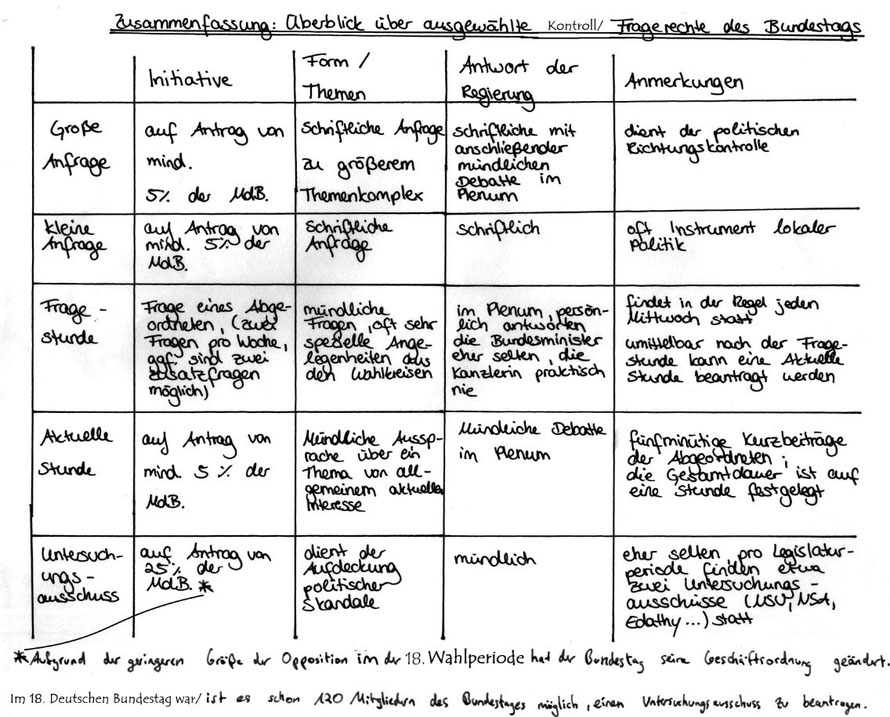 Zusammenfassung: Überblick über ausgewählte Kontroll/ Fragerechte des Bundestags
Initiative
Form /
Themen
Antwort der
Regierung
Anmerkungen
Große
Anfrage
auf Antrag von
mind.
5% der MdB.
schriftliche Anfrage
zu größerem
Themenkomplex
schriftliche mit
anschließender
mündlichen
Debatte im
Plenum
dient der politischen
Richtungskontrolle
kleine
Anfrage
auf Antrag von
mind. 5% der
MdB.
Schriftliche
Anfrage
schriftlich
oft Instrument lokaler
Politik
Frage-
stunde
Frage eines Abge-
ordneten, (zwei
Fragen pro Woche,
ggf. sind zwei
Zusatzfragen
möglich)
mündliche
Fragen, oft sehr
spezielle Ange-
legenheiten aus
den Wahlkreisen
im Plenum, persön-
lich antworten
die Bundesminister
eher selten, die
Kanzlerin praktisch
nie
findet in der Regel jeden
Mittwoch statt
umittelbar nach der Frage-
stunde kann eine Aktuelle
Stunde beantragt werden
Aktuelle
Stunde
auf Antrag von
mind. 5 % der
MdB.
Mündliche Aussp-
rache über ein
Thema von all-
gemeinem aktuellem
Interesse
Mündliche Debatte
im Plenum
fünfminütige Kurzbeiträge
der Abgeordneten;
die Gesamtdauer ist auf
eine Stunde festgelegt
Untersuch-
ungs-
ausschuss
auf Antrag von
25% der
MdB. *
dient der
Aufdeckung
politischer
Skandale
mündlich
eher selten, pro Legislatur-
periode finden etwa
zwei Untersuchungs-
ausschüsse (NSU, NSA,
Edathy...) statt
* Aufgrund der geringeren Größe der Opposition im der 18. Wahlperiode hat der Bundestag seine Geschäftsordnung geändert.
Im 18. Deutschen Bundestag war/ ist es schon 120 Mitgliedern des Bundestages möglich, einen Untersuchungsausschuss zu beantragen.